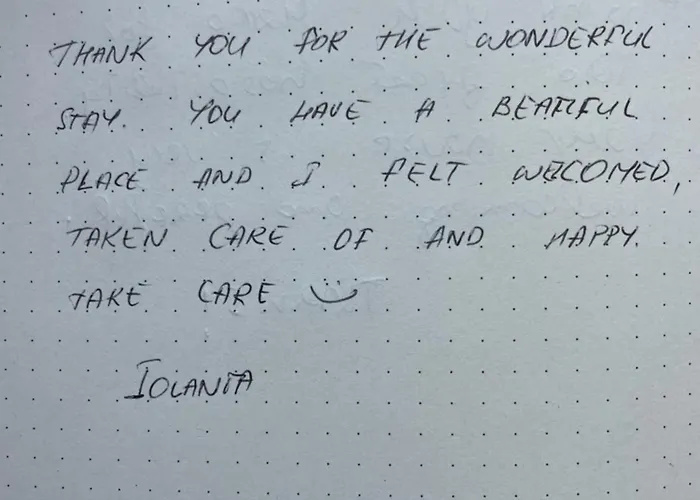 THANK YOU FOR THE WONDERFUL
STAY. YOU HAVE A BEATIFUL
PLACE AND I FELT WELCOMED,
TAKEN CARE OF AND HAPPY.
TAKE CARE
IOLANTA